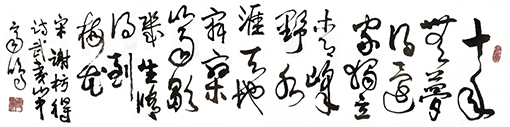 十年
無夢
得還
家獨立
青峰
野水
涯天地
寂寥
山雨歇
幾生修
得到
梅花
宋謝枋得
詩武夷山中